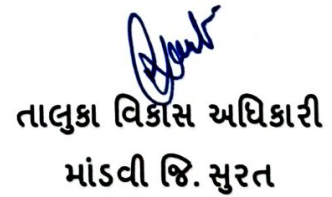 તાલુકા વિકાસ અધિકારી
માંડવી જિ. સુરત